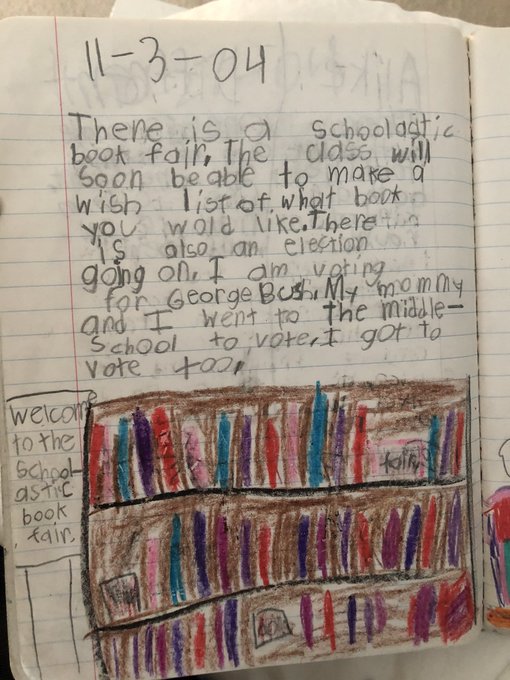 11-3-04
There is a schoolastic
book fair. The class will
soon be able to make a
wish list of what book
you wold like. There
is also an election
going on. I am voting
for George Bush. My mommy
and I went to the middle-
School to vote. I got to
vote too.
Welcome
to the
School-
astic
book
fair.
fair